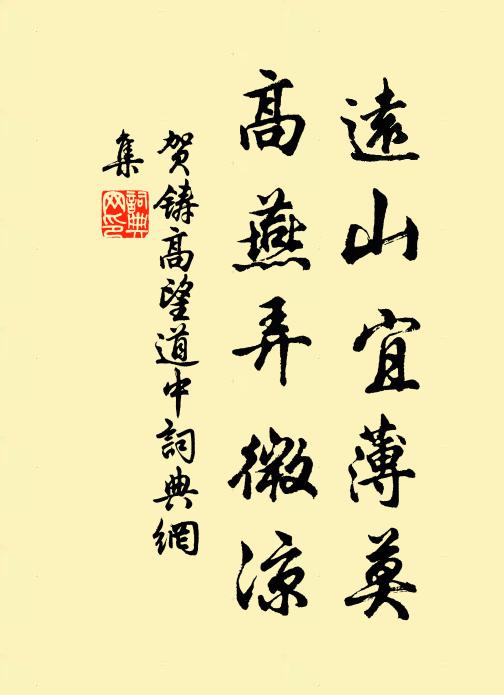 遠山宜薄莫
高燕弄微涼
賀鑄高望道中詞典網
集
詞典網印